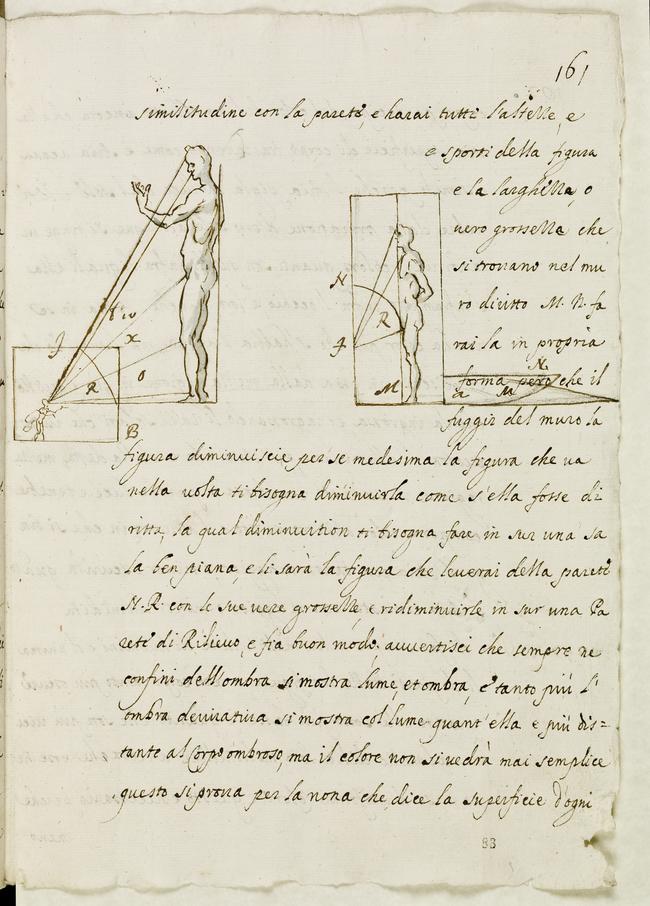 161
similitudine con la parete, e harai tutte l'altezze, e
e sporti della figura
e la larghezza, o
vero grossezza che
si trovano nel mu
ro diritto M. N. fa
rai la in propria
forma pero che il
fuggir del muro la
figura diminuiscie per se medesima la figura che va
nella volta ti bisogna diminuirla come s'ella fosse di
ritta, la qual diminuition ti bisogna fare in sur una sa
la ben piana, e li sarà la figura che leverai della parete
N. R. con le sue vere grossezze, e ridiminuirle in sur una Pa
rete di Rilievo, e fia buon modo, avvertisci che sempre ne
confini dell'ombra si mostra lume, et ombra, e tanto più l'
ombra derivativa si mostra col lume quant'ella e più dis=
tante al Corpo ombroso, ma il colore non si vedrà mai semplice
questo si prova per la nona che dice la superficie d'ogni
x
R
o
B
N
R
M
N
a
M
88